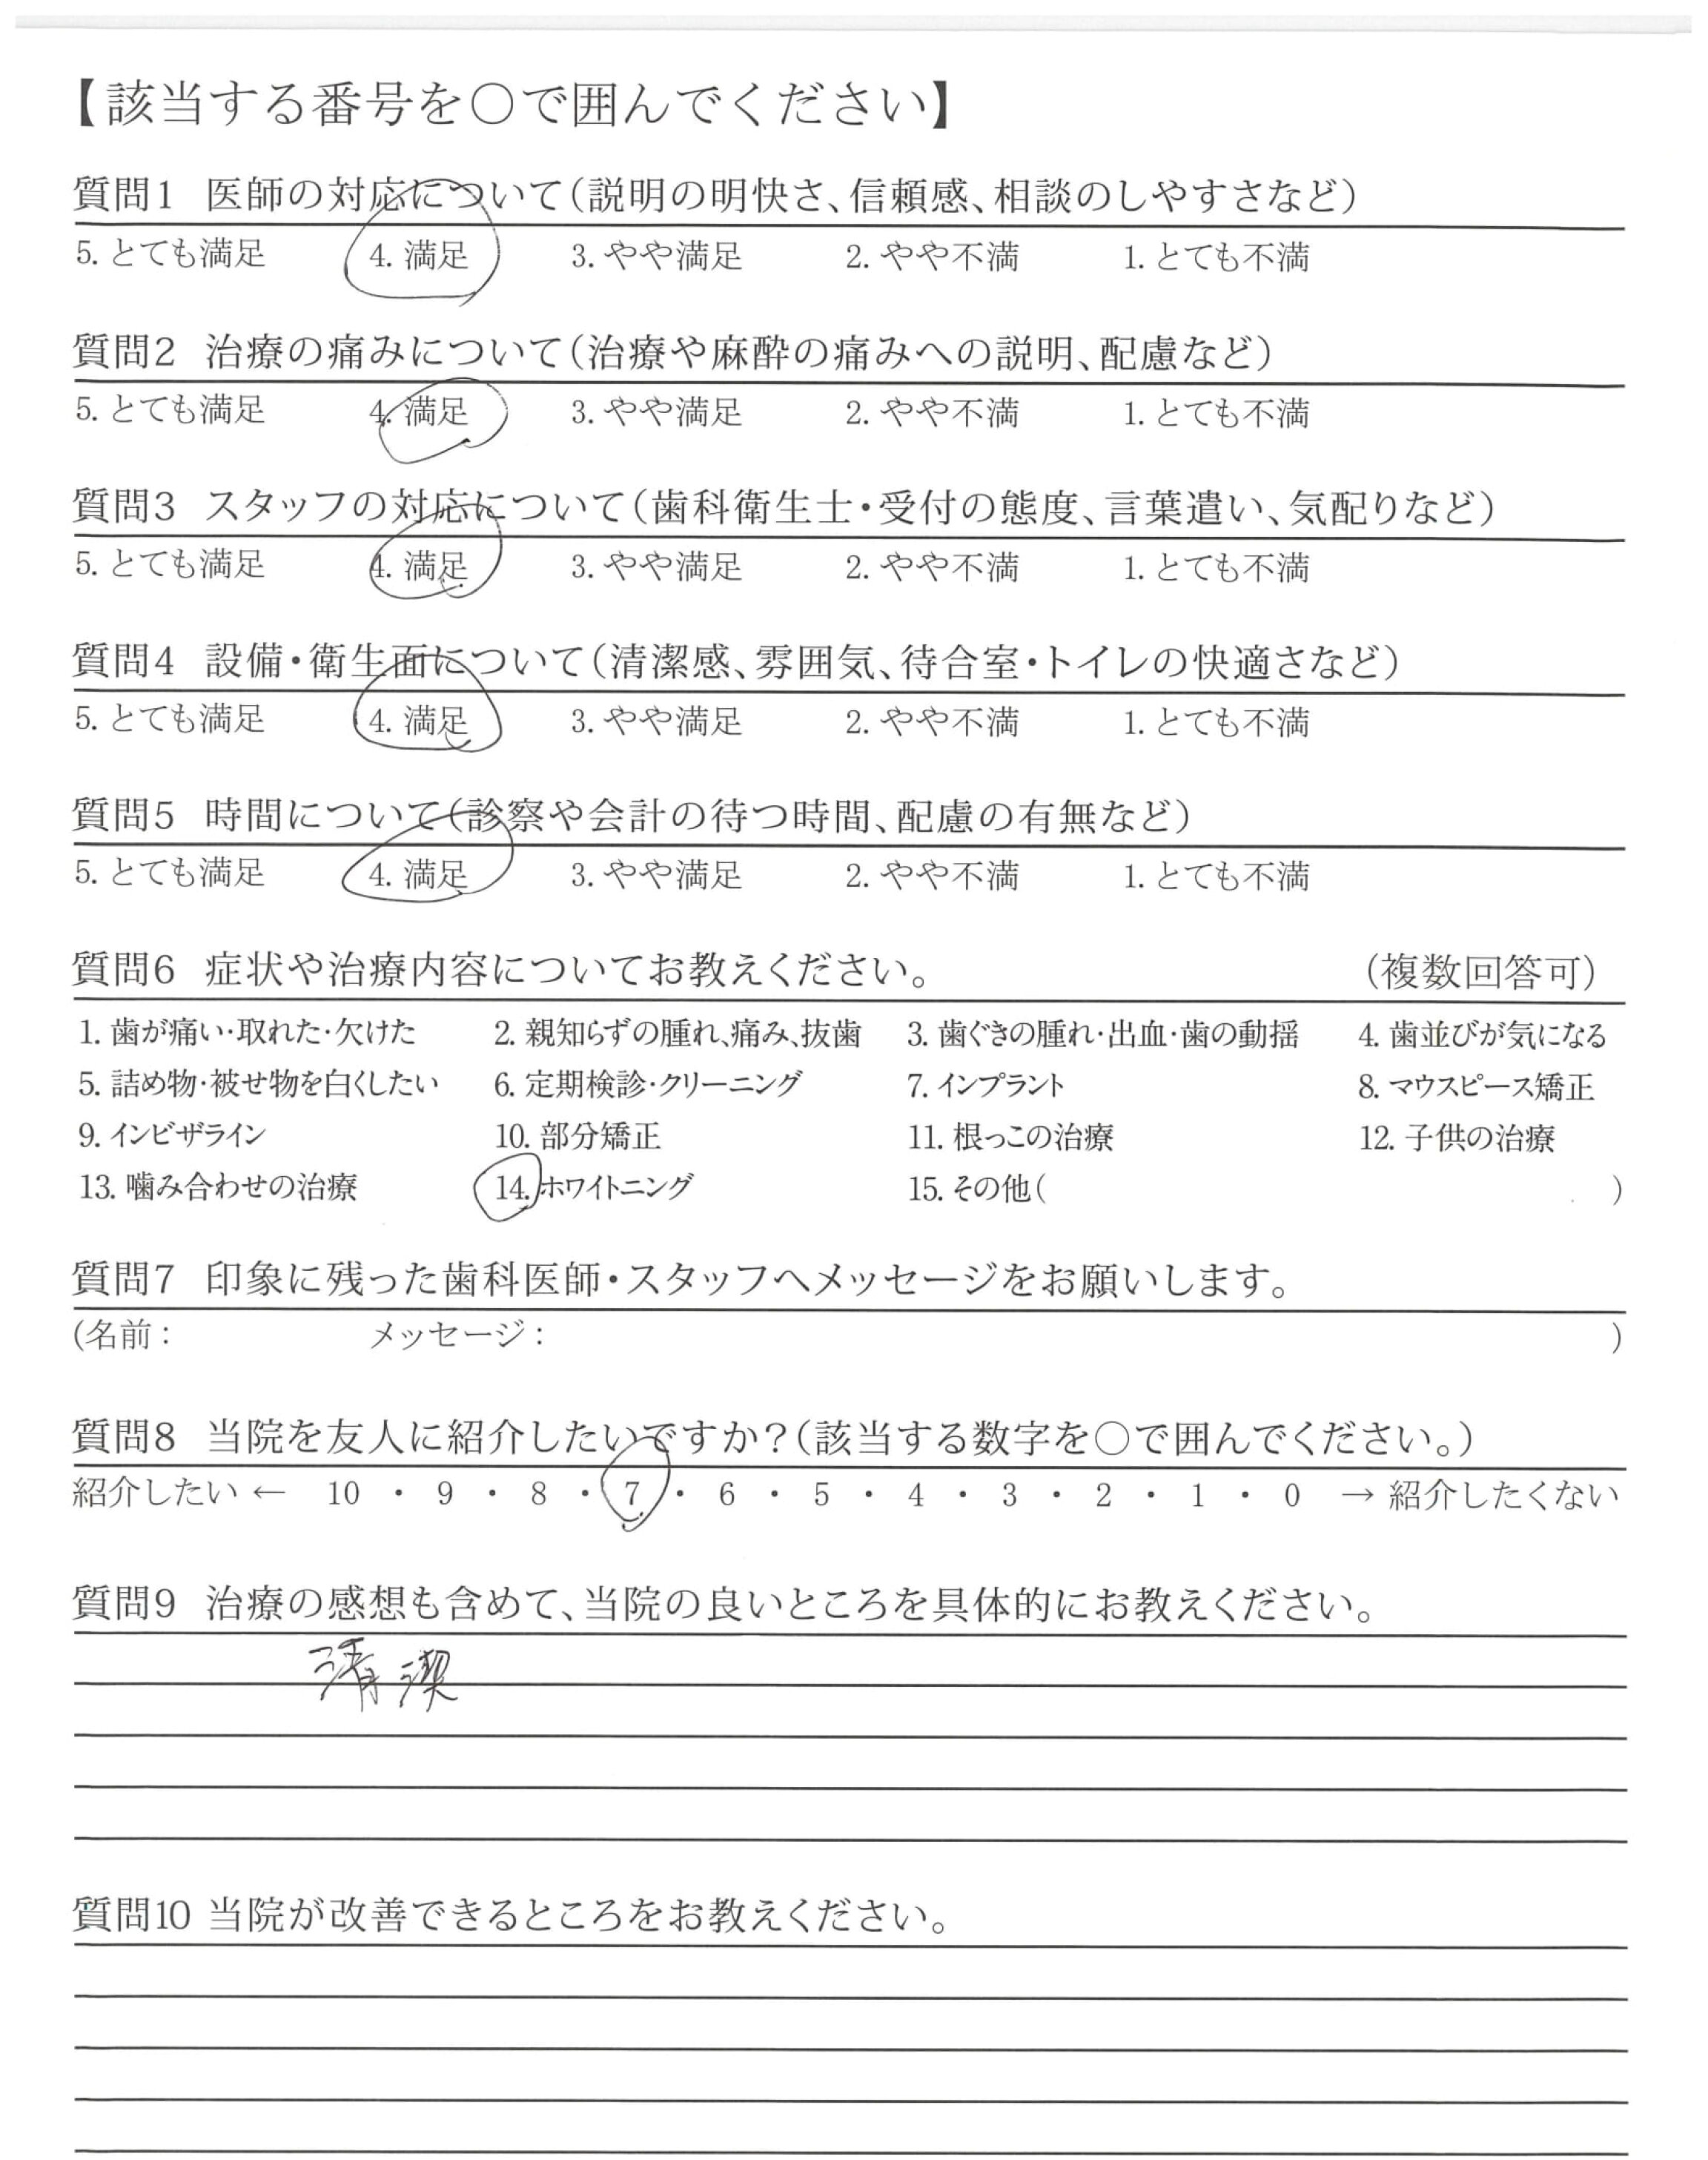 【該当する番号を○で囲んでください】
質問1 医師の対応について(説明の明快さ、信頼感、相談のしやすさなど)
5. とても満足 4. 満足 3. やや満足 2. やや不満 1. とても不満
質問2 治療の痛みについて(治療や麻酔の痛みへの説明、配慮など)
5. とても満足 4. 満足 3. やや満足 2. やや不満 1. とても不満
質問3 スタッフの対応について(歯科衛生士・受付の態度、言葉遣い、気配りなど)
5. とても満足 4. 満足 3. やや満足 2. やや不満 1. とても不満
質問4 設備・衛生面について(清潔感、雰囲気、待合室・トイレの快適さなど)
5. とても満足 4. 満足 3. やや満足 2. やや不満 1. とても不満
質問5 時間について(診察や会計の待つ時間、配慮の有無など)
5. とても満足 4. 満足 3. やや満足 2. やや不満 1. とても不満
質問6 症状や治療内容についてお教えください。 (複数回答可)
1. 歯が痛い・取れた・欠けた 2. 親知らずの腫れ、痛み、抜歯 3. 歯ぐきの腫れ・出血・歯の動揺 4. 歯並びが気になる
5. 詰め物・被せ物を白くしたい 6. 定期検診・クリーニング 7. インプラント 8. マウスピース矯正
9. インビザライン 10. 部分矯正 11. 根っこの治療 12. 子供の治療
13. 噛み合わせの治療 14. ホワイトニング 15. その他( )
質問7 印象に残った歯科医師・スタッフへメッセージをお願いします。
(名前: メッセージ: )
質問8 当院を友人に紹介したいですか?(該当する数字を○で囲んでください。)
紹介したい ← 10 ・ 9 ・ 8 ・ 7 ・ 6 ・ 5 ・ 4 ・ 3 ・ 2 ・ 1 ・ 0 → 紹介したくない
質問9 治療の感想も含めて、当院の良いところを具体的にお教えください。
清潔
質問10 当院が改善できるところをお教えください。